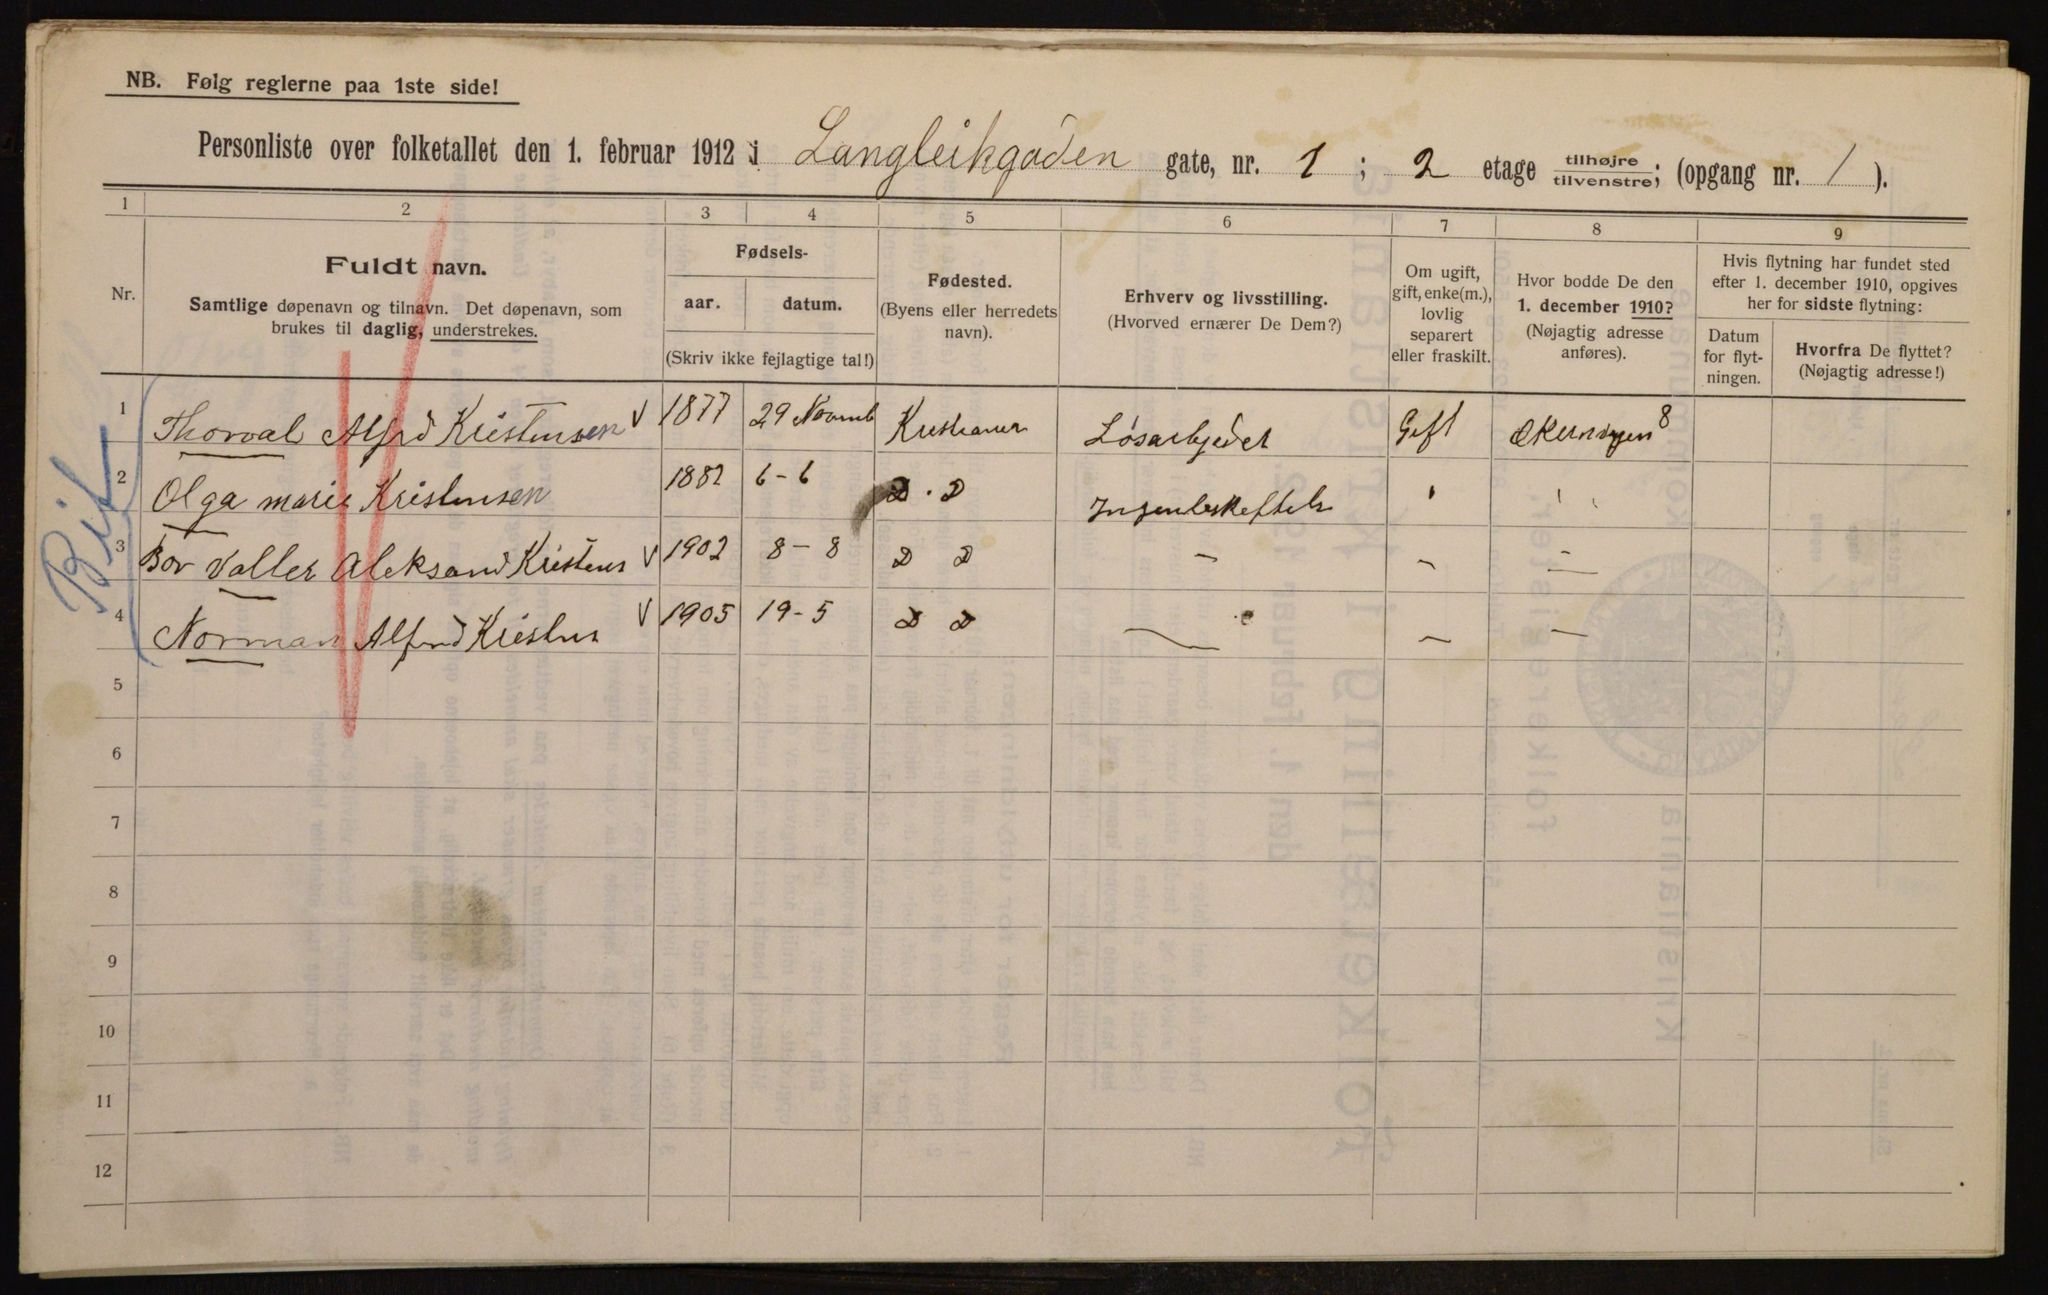 NB. Følg reglerne paa 1ste side!
Personliste over folketallet den 1. februar 1912 i Langleikgaden gate, nr. 1 ; 2 etage tilhøjre/tilvenstre; (opgang nr. 1 ).
1 2 3 4 5 6 7 8 9
Nr.
Fuldt navn.
Samtlige døpenavn og tilnavn. Det døpenavn, som
brukes til daglig, understrekes.
Fødsels-
aar. datum.
(Skriv ikke fejlagtige tal!)
Fødested.
(Byens eller herredets
navn).
Erhverv og livsstilling.
(Hvorved ernærer De Dem?)
Om ugift,
gift, enke(m.),
lovlig
separert
eller fraskilt.
Hvor bodde De den
1. december 1910?
(Nøjagtig adresse
anføres).
Hvis flytning har fundet sted
efter 1. december 1910, opgives
her for sidste flytning:
Datum
for flyt-
ningen.
Hvorfra De flyttet?
(Nøjagtig adresse!)
1 Thorval Alfred Kristensen 1877 29 Novemb Løsarbejder Gift 8
2 Olga marie Kristensen 1882 6-6 D. D "
3 Valter Aleksand 1902 8-8 D D - - -
4 Norman Alfred 1905 19-5 D D - - -
5
6
7
8
9
10
11
12